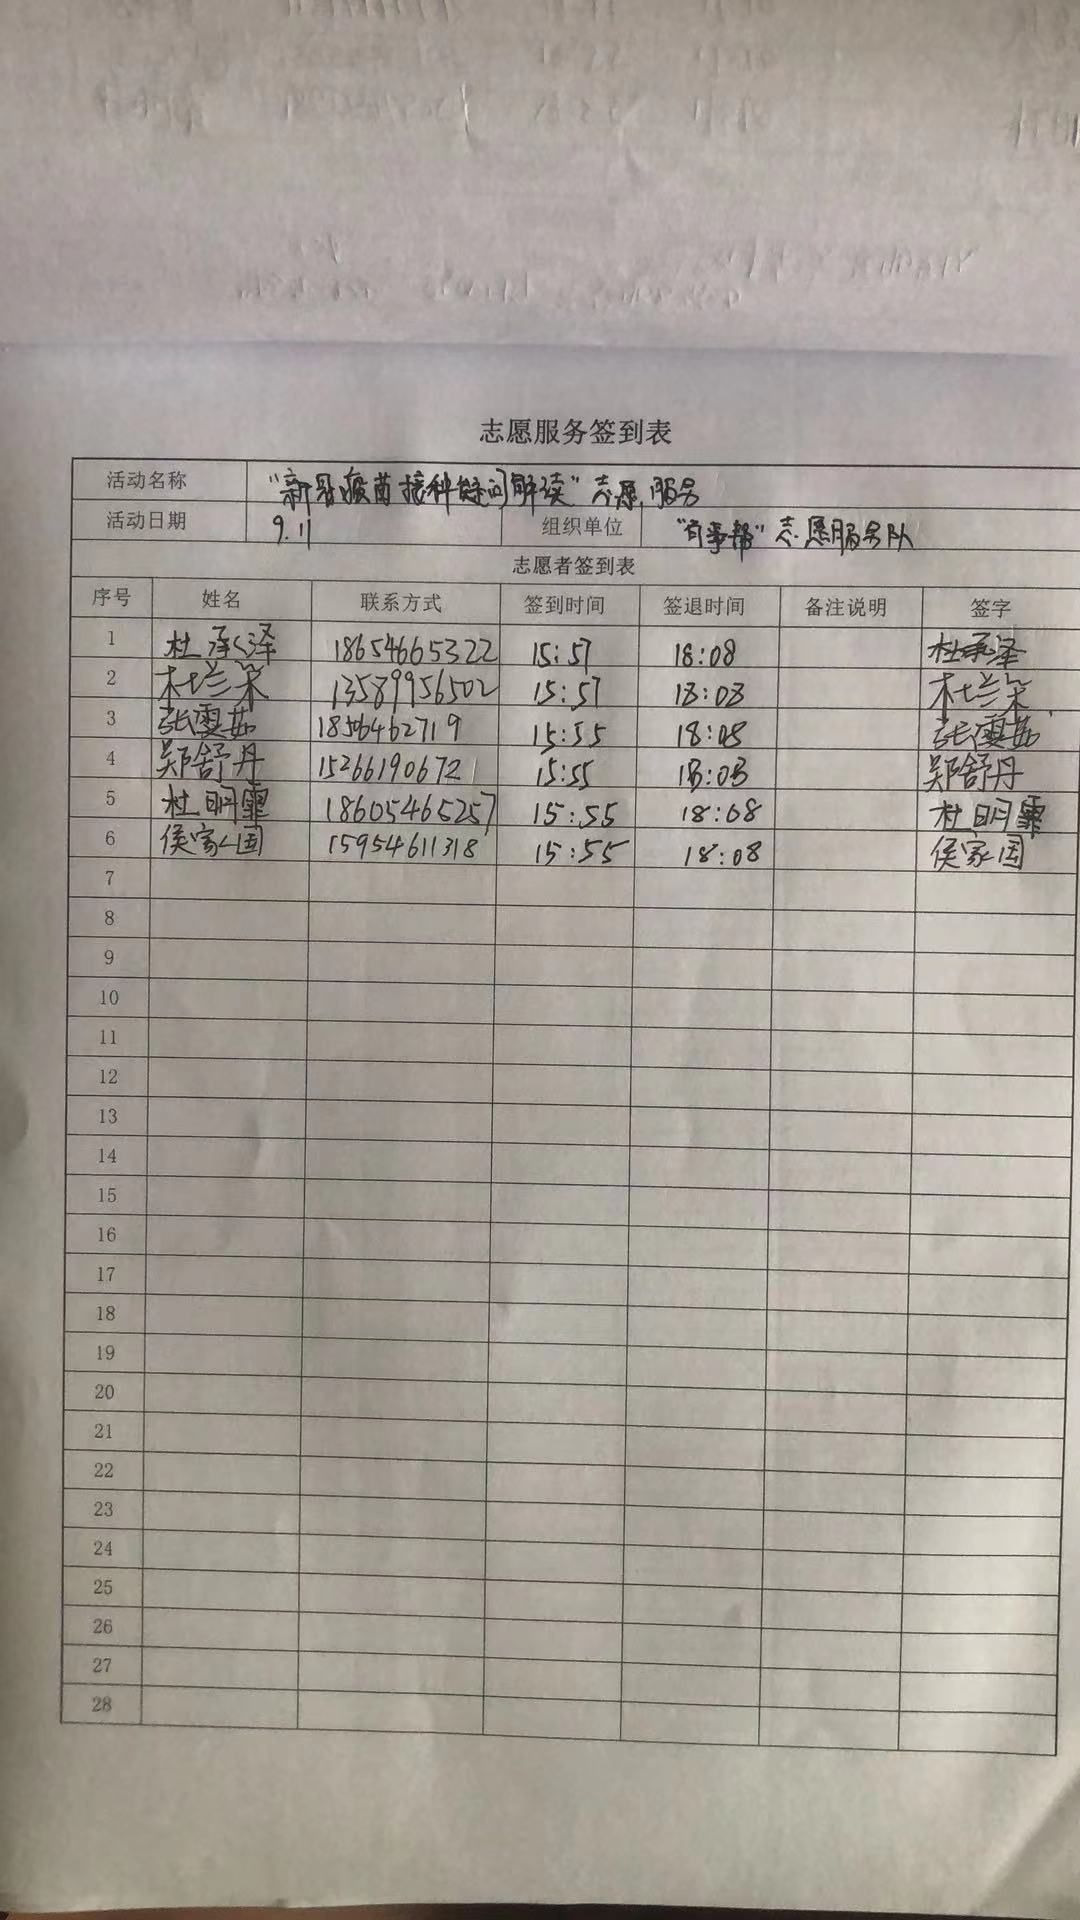 志愿服务签到表
活动名称 "新冠疫苗接种疑问解读"志愿服务
活动日期 9.11 组织单位 "有事帮"志愿服务队
志愿者签到表
序号 姓名 联系方式 签到时间 签退时间 备注说明 签字
1 杜承泽 18654665322 15:57 18:08 杜承泽
2 杜兰笨 13589956502 15:57 18:08 杜兰笨
3 张雯茹 1856462719 15:55 18:08 张雯茹
4 郑舒丹 15266190672 15:55 18:08 郑舒丹
5 杜明霏 18605465257 15:55 18:08 杜明霏
6 侯家国 15954611318 15:55 18:08 侯家国
7
8
9
10
11
12
13
14
15
16
17
18
19
20
21
22
23
24
25
26
27
28